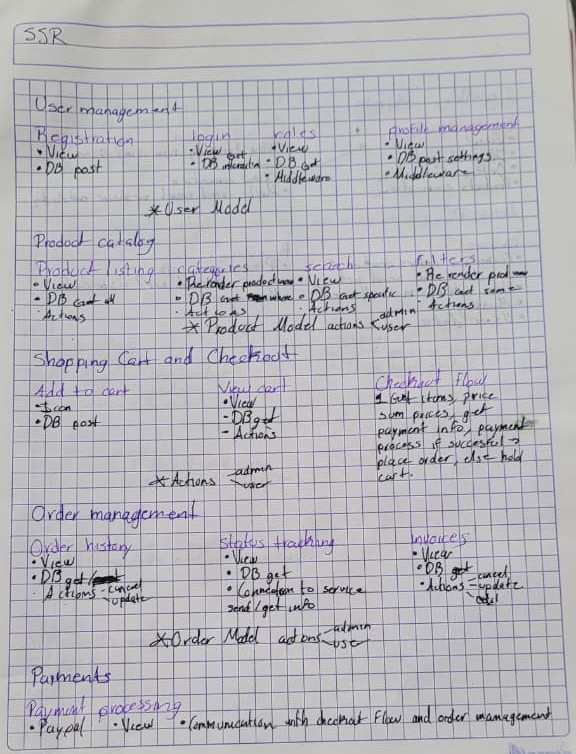 SSR
User management
Registration
• View
• DB post
login
• View
• DB
roles
• View
• DB Get
• Middleware
profile management
• View
• DB post settings
• Middleware
* User Model
Product catalog
Product listing
• View
• DB Get all
• Actions
categories
• Re render product
• DB Get where
• Actions
search
• View
• DB Get specific
• Actions
filters
• Re render prod
• DB Get some
• Actions
* Product Model actions < admin
user
Shopping Cart and Checkout
Add to cart
• Icon
• DB post
View cart
• View
- DB get
- Actions
Checkout Flow
1 Get items, price
sum prices, get
payment info, payment
process if succesful →
place order, else hold
cart.
* Actions < admin
user
Order management
Order history
• View
• DB get
• Actions - cancel
update
Status tracking
• View
• DB get
• Connection to service
send/get info
Invoices
• View
• DB get
• Actions - cancel
update
* Order Model actions < admin
user
Payments
Payment processing
• Paypal • View • Communication with checkout Flow and order management